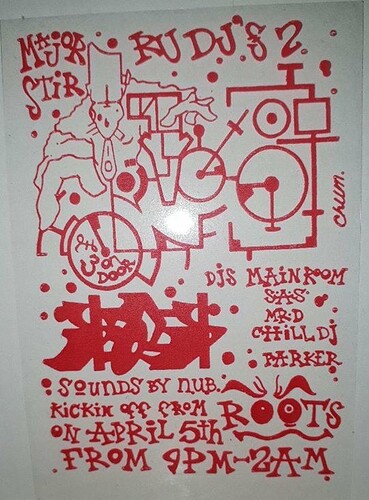 MAJOR STIR
RU DJ'S 2
CHUM.
£3 ON DOOR
DJS MAINROOM
S.A.S
MR.D
CHILL DJ
PARKER
SOUNDS BY NUB.
KICKIN OFF FROM
ROOTS
ON APRIL 5th
FROM 9PM-2AM